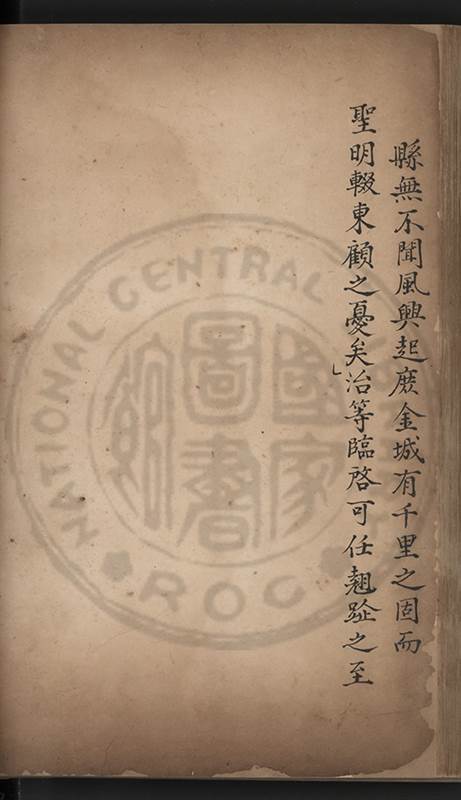 縣無不聞風興起庶金城有千里之固而
聖明輟東顧之憂矣治等臨啓可任翹跂之至
NATIONAL CENTRAL
國家圖書館
ROC